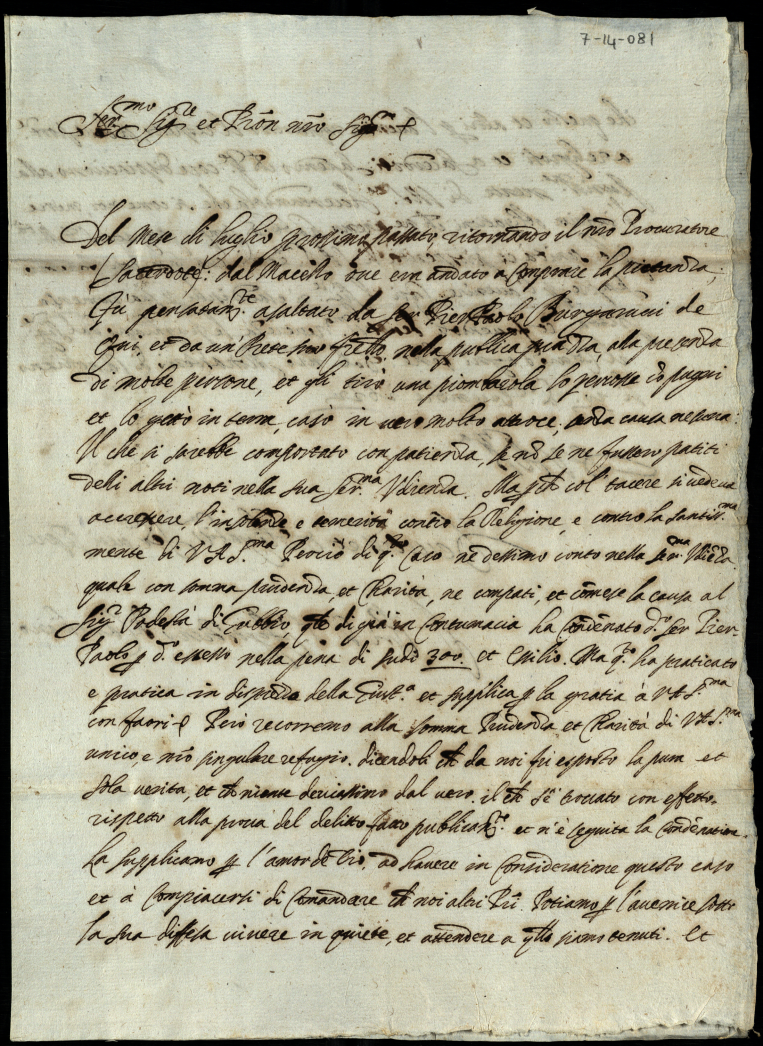 7-14-081
Ser.mo Sig.re et Pron nro Sig.re
Del mese di luglio prossimo passato ritornando il nro Procuratore
Sacerdote: dal Macello oue era andato a comprare la pietanza,
fù pensatam.te asaltato da ser Pier Paolo Bargarucci de
quì, et da un Prete suo frello nella publica piazza, alla presenza
di molte persone, et gli tirò una piombarola lo percosse co pugni
et lo gettò in terra, caso in uero molto atroce, senza causa nesuna:
Il che si sarebbe comportato con patienza, se nõ se ne fussero patiti
delli altri noti nella sua Ser.ma Udienza. Ma pch col tacere si uedeua
accrescere l'insolenze e temerità contro la Religione, e contro la santiss.ma
mente di V.A.S.ma Perciò di q.to caso ne dessimo conto nella Ser.ma Udieza
quale con somma prudenza, et Charità, ne compatì, et comese la causa al
Sig.r Podestà di Gubbio, qle di già in Contumacia ha Condenato d.o ser Pier
Paolo p d.o ecesso nella pena di scudi 300. et esilio. Ma q.to ha praticato
e pratica in dispreza della Giust.a et supplica p la gratia à V.A.S.ma
con fauori Però recorremo alla somma Prudenza et Charità di V.A.S.ma
unico, e nro singulare refugio. dicendoli ch da noi fù esposto la pura et
sola uerità, et ch niente deuiassimo dal uero. il ch s'è trouato con effetto.
rispetto alla proua del delitto fatto publicam.te et n'è seguita la Condenatione.
La supplicamo p l'amor de Dio, ad hauere in Consideratione questo caso
et à Compiacersi di Comandare ch noi altri Pri Potiamo p l'auenire sotto
la sua diffesa uiuere in quiete, et attendere a qllo siamo tenuti. Et